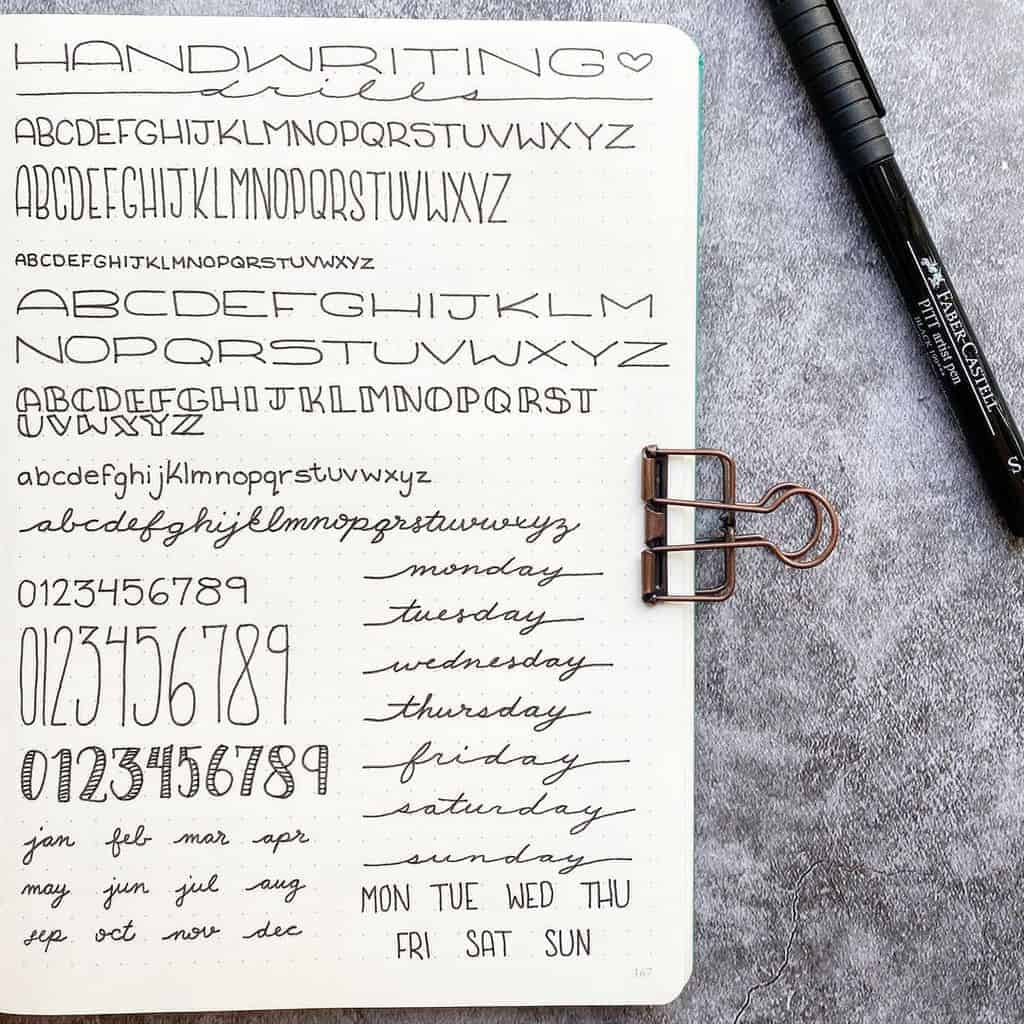 HANDWRITING
drills
ABCDEFGHIJKLMNOPQRSTUVWXYZ
ABCDEFGHIJKLMNOPQRSTUVWXYZ
ABCDEFGHIJKLMNOPQRSTUVWXYZ
ABCDEFGHIJKLM
NOPQRSTUVWXYZ
ABCDEFGHIJKLMNOPQRST
UVWXYZ
abcdefghijklmnopqrstuvwxyz
abcdefghijklmnopqrstuvwxyz
0123456789
0123456789
0123456789
jan feb mar apr
may jun jul aug
sep oct nov dec
monday
tuesday
wednesday
thursday
friday
saturday
sunday
MON TUE WED THU
FRI SAT SUN
167
FABER-CASTELL
PITT artist pen
S